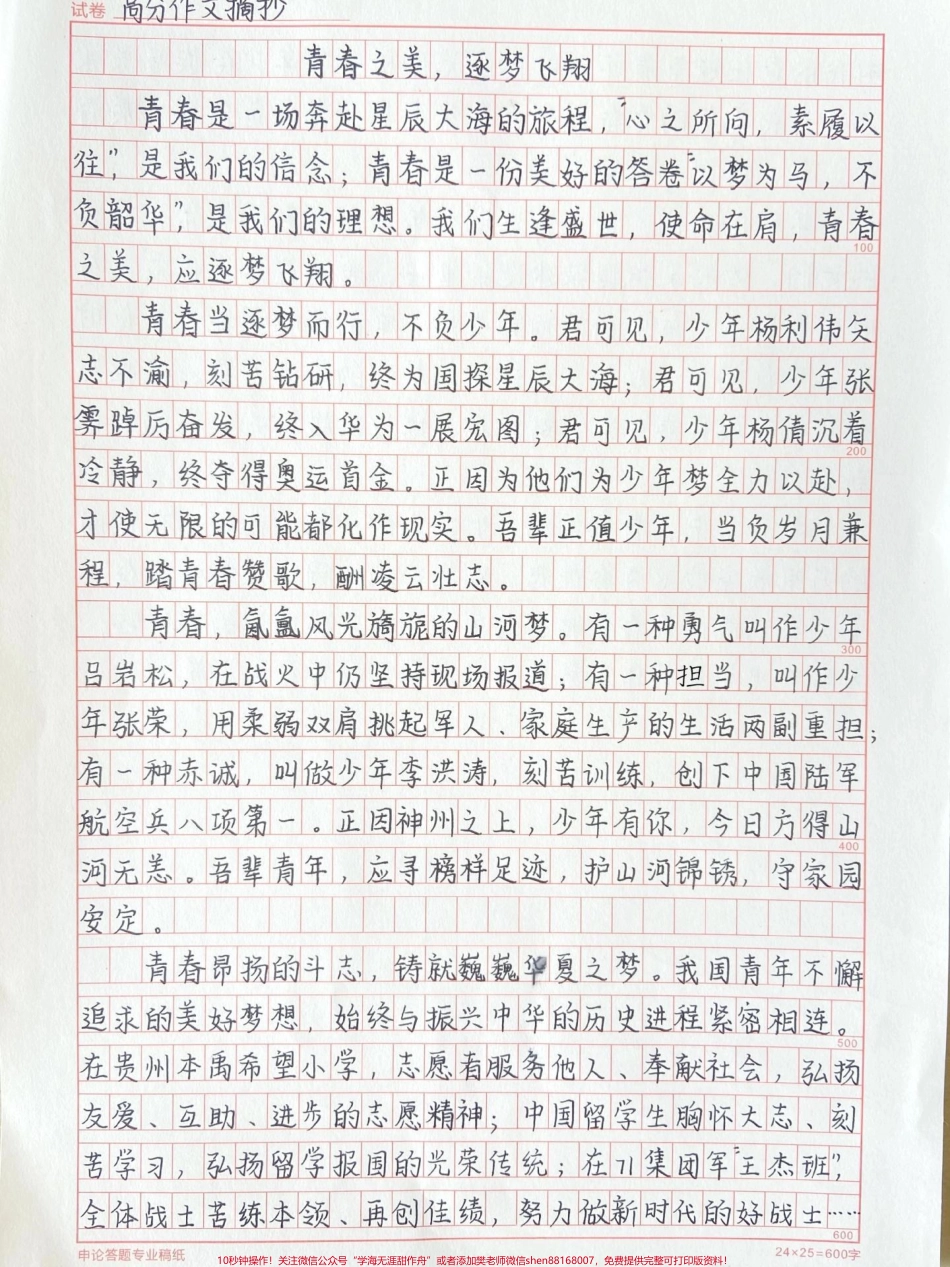 试卷 高分作文摘抄
青春之美，逐梦飞翔
青春是一场奔赴星辰大海的旅程，“心之所向，素履以
往”，是我们的信念；青春是一份美好的答卷“以梦为马，不
负韶华”，是我们的理想。我们生逢盛世，使命在肩，青春
100
之美，应逐梦飞翔。
青春当逐梦而行，不负少年。君可见，少年杨利伟矢
志不渝，刻苦钻研，终为国探星辰大海；君可见，少年张
霁踔厉奋发，终入华为一展宏图；君可见，少年杨倩沉着
200
冷静，终夺得奥运首金。正因为他们为少年梦全力以赴，
才使无限的可能都化作现实。吾辈正值少年，当负岁月兼
程，踏青春赞歌，酬凌云壮志。
青春，氤氲风光旖旎的山河梦。有一种勇气叫作少年
300
吕岩松，在战火中仍坚持现场报道；有一种担当，叫作少
年张荣，用柔弱双肩挑起军人、家庭生产的生活两副重担；
有一种赤诚，叫做少年李洪涛，刻苦训练，创下中国陆军
航空兵八项第一。正因神州之上，少年有你，今日方得山
400
河无恙。吾辈青年，应寻榜样足迹，护山河锦锈，守家园
安定。
青春昂扬的斗志，铸就巍巍华夏之梦。我国青年不懈
追求的美好梦想，始终与振兴中华的历史进程紧密相连。
500
在贵州本禹希望小学，志愿者服务他人、奉献社会，弘扬
友爱、互助、进步的志愿精神；中国留学生胸怀大志、刻
苦学习，弘扬留学报国的光荣传统；在71集团军“王杰班”，
全体战士苦练本领、再创佳绩，努力做新时代的好战士……
600
申论答题专业稿纸
24×25=600字
10秒钟操作！关注微信公众号“学海无涯甜作舟”或者添加樊老师微信shen88168007，免费提供完整可打印版资料！